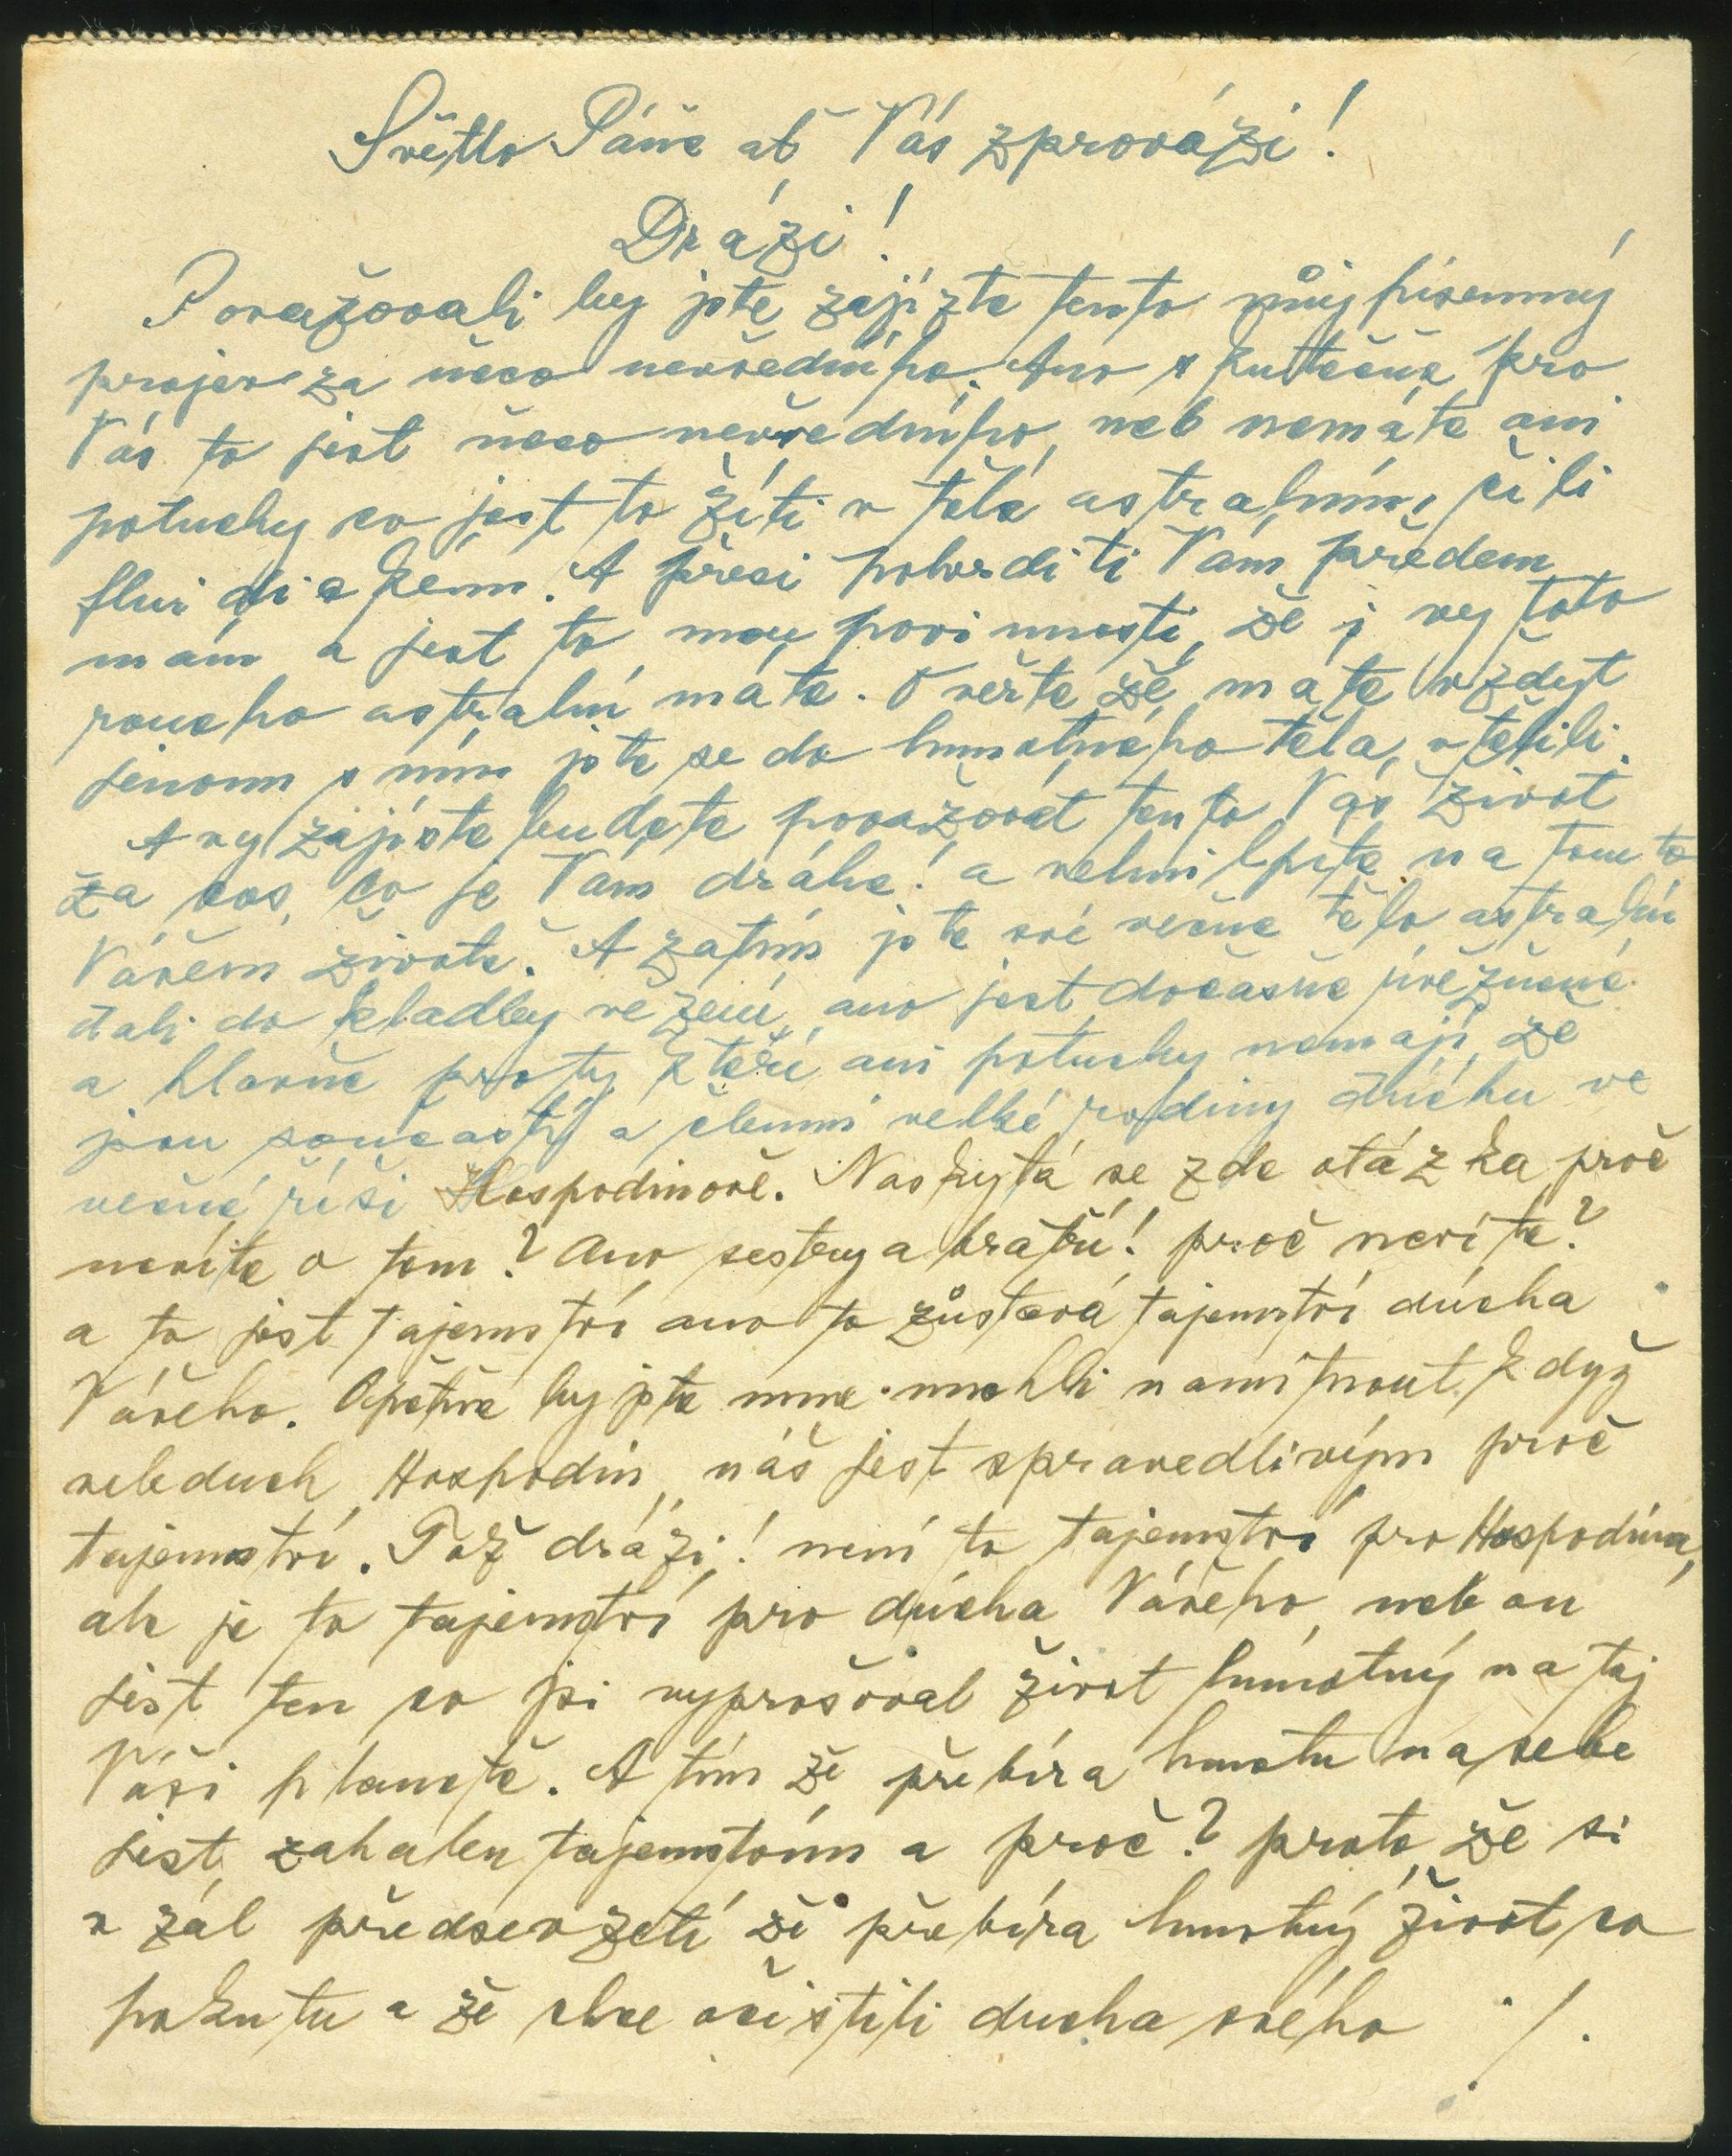 Světlo Páně ať Vás zprovází!
Drázi!
Považovali by jste zajízte tento můj písemný
projev za něco nevšedního. Ano skutečně pro
Vás to jest něco nevšedního, neb nemáte ani
potuchy co jest to žíti v těle astralním, čili
fluidickém. A přeci potvrditi Vám předem
mám a jest to mou povinností, že i vy toto
roucho astralní máte. Věřte že máte vždyt
jenom s ním jste se do hmotného těla vtělili.
A vy zajiste budete považovat tento Vás život
za cos, co je Vám drahé! a velmi lpíte na tomto
Vášem životě. A zatím jste své věčné tělo astralní
dali do kladby vězení, ano jest dočasně uvězněné
a hlavně pro ty kteří ani potuchy nemají, že
jsou součastí a členmi velké rodiny dúchu ve
věčné říši Hospodinově. Naskytá se zde otázka proč
nevíte o tom? Ano sestry a bratří! proč nevíte?
a to jest tajemství ano to zůstavá tajemství dúcha
Vášeho. Opětně by jste mne mohli namítnout když
veleduch Hospodin náš jest spravedlivým proč
tajemství. Tož drázi! není to tajemství pro Hospodina,
ale je to tajemství pro dúcha Vášeho, neb on
jest ten co jsi vyprošoval život hmotný na tej
Váši planetě. A tím že přebíra hmotu na sebe
jest zahalen tajemstvím a proč? proto že si
vzál předsevzetí že přebíra hmotný život co
pokutu a že chce očistiti ducha svého ./.